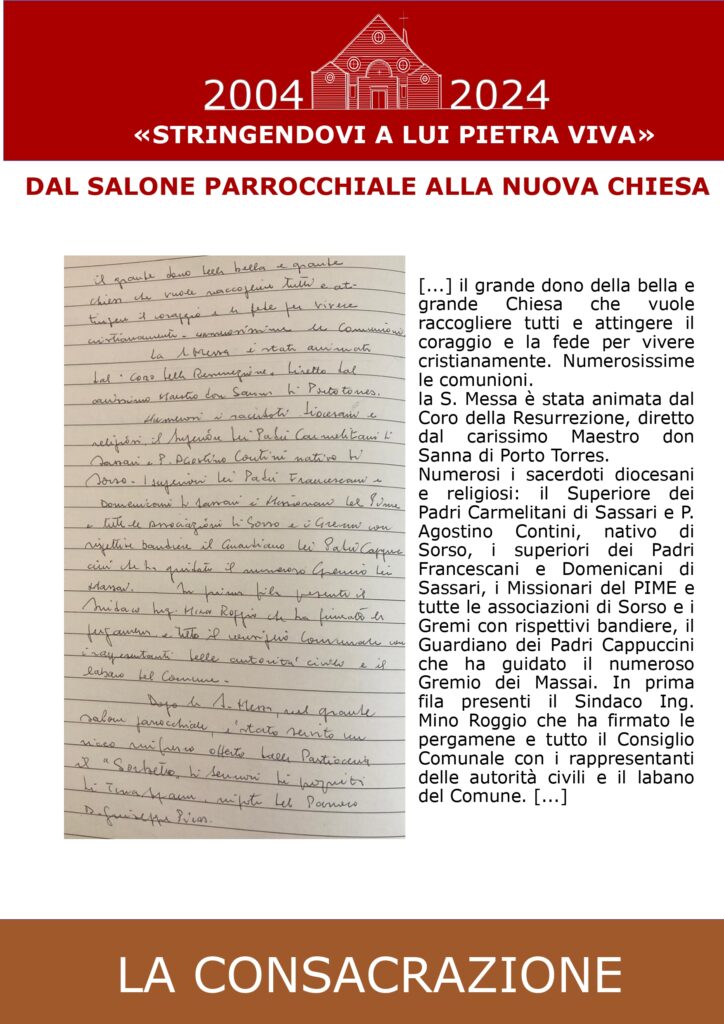 2004 2024
«STRINGENDOVI A LUI PIETRA VIVA»
DAL SALONE PARROCCHIALE ALLA NUOVA CHIESA
il grande dono della bella e grande
chiesa che vuole raccogliere tutti e at-
tingere il coraggio e la fede per vivere
cristianamente. numerosissime le Comunioni
La S. Messa è stata animata
dal "Coro della Resurrezione, diretto dal
carissimo Maestro don Sanna di Portotorres.
Numerosi i sacerdoti diocesani e
religiosi, il Superiore dei Padri Carmelitani di
Sassari e P. Agostino Contini nativo di
Sorso. I superiori dei Padri Francescani e
Domenicani di Sassari i Missionari del Pime
e tutte le associazioni di Sorso e i Gremi con
rispettive bandiere il Guardiano dei Padri Cappuc
cini che ha guidato il numeroso Gremio dei
Massai. In prima fila presenti il
Sindaco Ing. Mino Roggio che ha firmato le
pergamene e tutto il consiglio Comunale con
i rappresentanti delle autorità civili e il
labaro del Comune.
Dopo la S. Messa, nel grande
salone parrocchiale, è stato servito un
ricco rinfresco offerto dalla
il "Sorbetto, di
di nipote del Parroco
D. Giuseppe
[...] il grande dono della bella e
grande Chiesa che vuole
raccogliere tutti e attingere il
coraggio e la fede per vivere
cristianamente. Numerosissime
le comunioni.
la S. Messa è stata animata dal
Coro della Resurrezione, diretto
dal carissimo Maestro don
Sanna di Porto Torres.
Numerosi i sacerdoti diocesani
e religiosi: il Superiore dei
Padri Carmelitani di Sassari e P.
Agostino Contini, nativo di
Sorso, i superiori dei Padri
Francescani e Domenicani di
Sassari, i Missionari del PIME e
tutte le associazioni di Sorso e i
Gremi con rispettivi bandiere, il
Guardiano dei Padri Cappuccini
che ha guidato il numeroso
Gremio dei Massai. In prima
fila presenti il Sindaco Ing.
Mino Roggio che ha firmato le
pergamene e tutto il Consiglio
Comunale con i rappresentanti
delle autorità civili e il labano
del Comune. [...]
LA CONSACRAZIONE